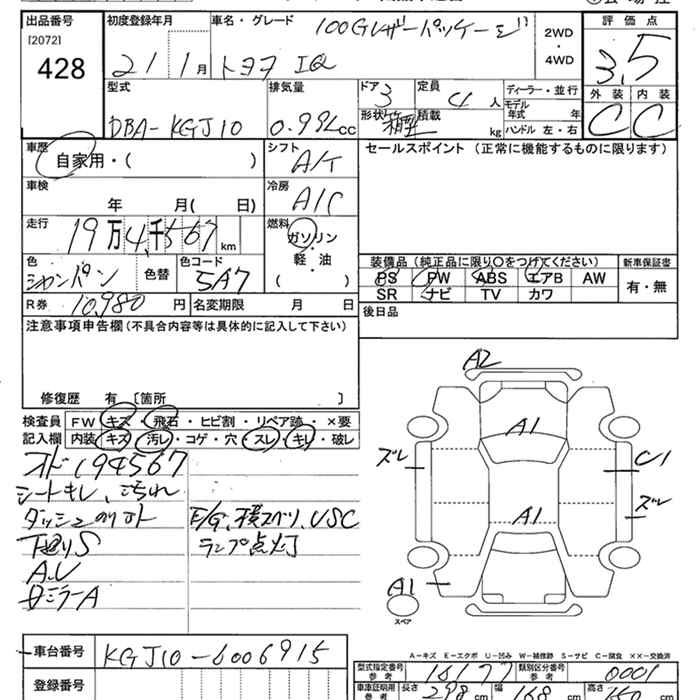 出品番号 初度登録年月 車名・グレード 100Gレザーパッケージ 評価点
[2072] 2WD
428 21 1月 トヨタ IQ 4WD 3.5
外装 内装
型式 排気量 ドア 3 定員 4人 ディーラー・並行
DBA-KGJ10 0.99L cc 形状 箱型 積載 kg モデル年式 年 C C
ハンドル 左・右
車歴 シフト セールスポイント (正常に機能するものに限ります)
自家用・( ) A/T
車検 冷房
年 月( 日) A/C
走行 燃料
19万4千567km ガソリン
軽・油
( )
色 色替 色コード 装備品 (純正品に限り○をつけてください) 新車保証書
シャンパン 5A7 PS PW ABS エアB AW 有・無
SR ナビ TV カワ
R券 10,980円 名変期限 月 日 後日品
注意事項申告欄 (不具合内容等は具体的に記入して下さい)
修復歴 有 〔箇所 〕
検査員 FW キズ・飛石・ヒビ割・リペア跡・×要
記入欄 内装 キズ・汚レ・コゲ・穴・スレ・キレ・破レ
オド194567
シートキレ、こげれ
E/G、 VSC
ランプ点灯
下廻りS
ミラーA
A2
A1
A1
A1
C1
ズレ
ズレ
スペア
車台番号 KGJ10-6006915
登録番号
A-キズ E-エクボ U-凹み W-補修跡 S-サビ C-腐食 ××-交換済
型式指定番号 参考 16177 類別区分番号 参考 0001
車庫証明用 参考 長さ 298cm 幅 168cm 高さ 150cm